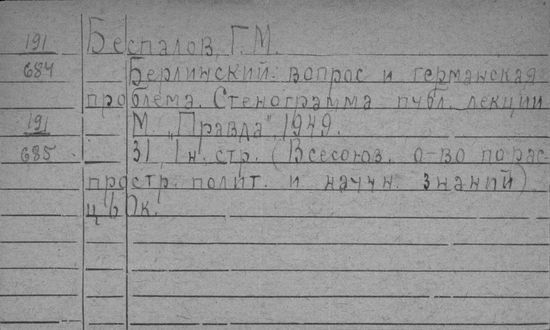 191 Беспалов, Г.М.
684 Берлинский вопрос и германская
проблема. Стенограмма публ. лекции
191 М. „Правда", 1949.
685 31, 1 н. стр. (Всесоюз. о-во по рас
простр. полит. и научн. знаний).
ц. 60к.